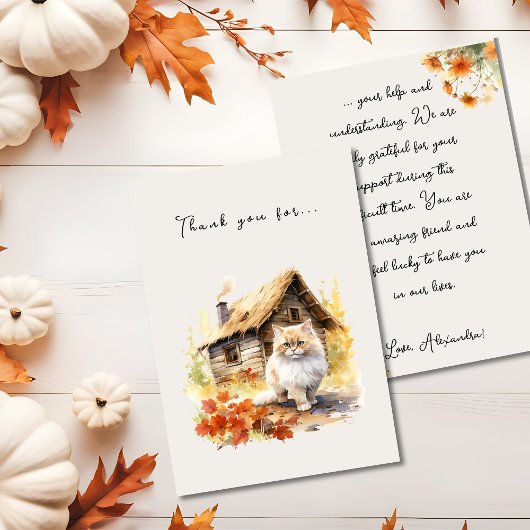 Thank you for...
... your help and
understanding. We are
grateful for your
support during this
time. You are
amazing friend and
feel lucky to have you
in our lives.
Love, Alexandra!